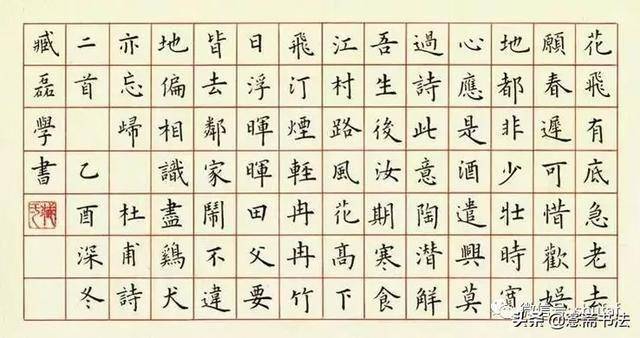 花飛有底急老去
願春遲可惜歡娛
地都非少壯時寬
心應是酒遣興莫
過詩此意陶潛解
吾生後汝期寒食
江村路風花高下
飛汀煙輕冉冉竹
日浮暉暉田父要
皆去鄰家鬧不違
地偏相識盡鷄犬
亦忘歸 杜甫詩
二首 乙酉深冬
臧磊學書
头条@憲斋书法